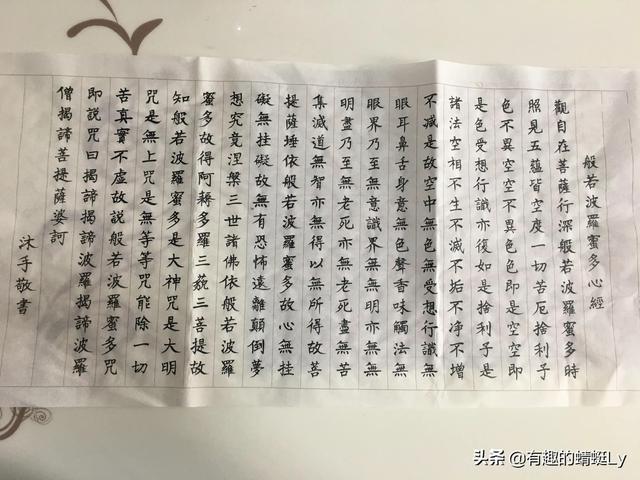 般若波羅蜜多心經
觀自在菩薩行深般若波羅蜜多時
照見五蘊皆空度一切苦厄捨利子
色不異空空不異色色即是空空即
是色受想行識亦復如是捨利子是
諸法空相不生不滅不垢不净不增
不减是故空中無色無受想行識無
眼耳鼻舌身意無色聲香味觸法無
眼界乃至無意識界無無明亦無無
明盡乃至無老死亦無老死盡無苦
集滅道無智亦無得以無所得故菩
提薩埵依般若波羅蜜多故心無挂
礙無挂礙故無有恐怖遠離顛倒夢
想究竟涅槃三世諸佛依般若波羅
蜜多故得阿耨多羅三藐三菩提故
知般若波羅蜜多是大神咒是大明
咒是無上咒是無等等咒能除一切
苦真實不虛故說般若波羅蜜多咒
即說咒曰揭諦揭諦波羅揭諦波羅
僧揭諦菩提薩婆訶
沐手敬書
头条 @有趣的蜻蜓Ly